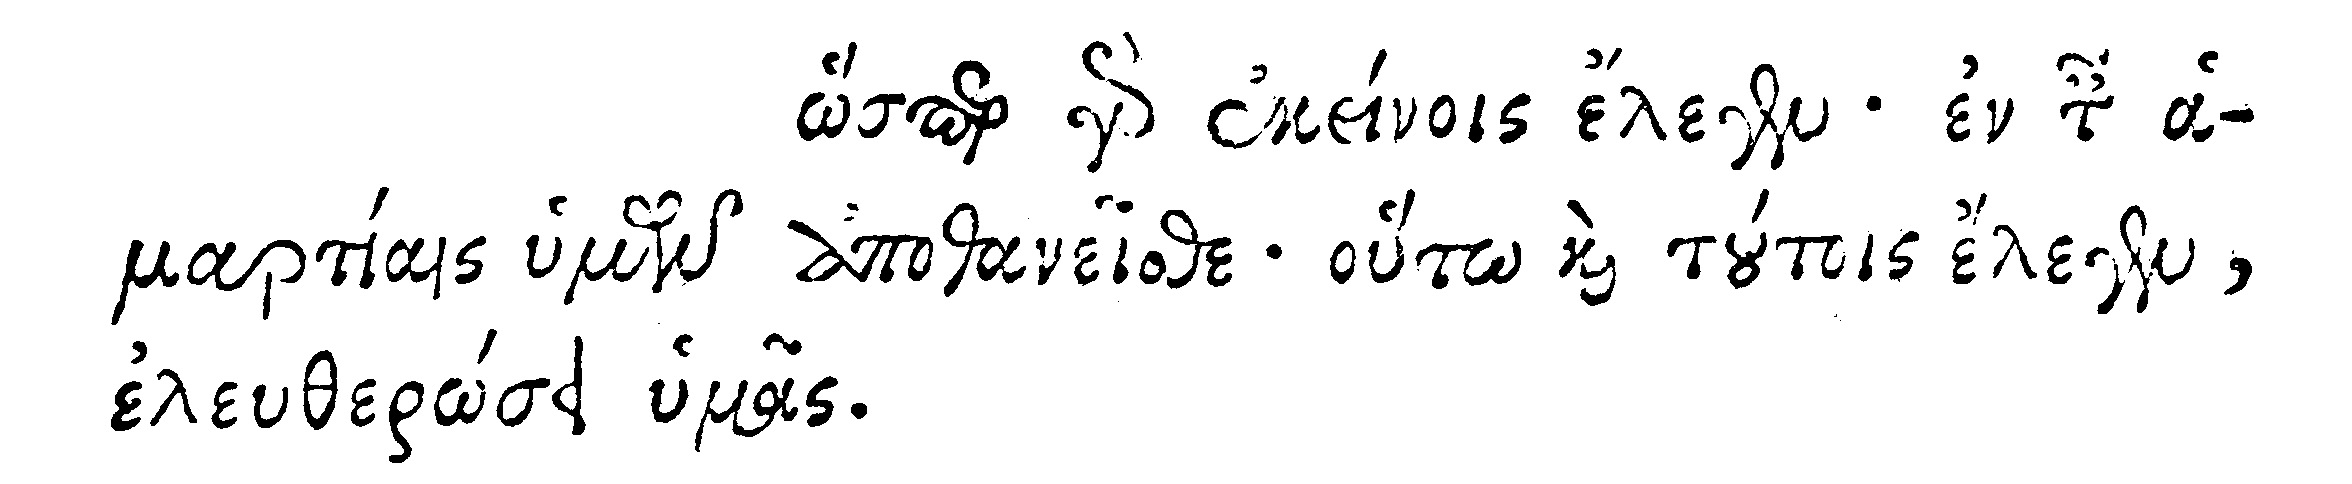 ὥσπερ γὰρ ἐκείνοις ἔλεγεν· ἐν ταῖς ἁ-
μαρτίαις ὑμῶν ἀποθανεῖσθε· οὕτω καὶ τούτοις ἔλεγεν,
ἐλευθερώσει ὑμᾶς.